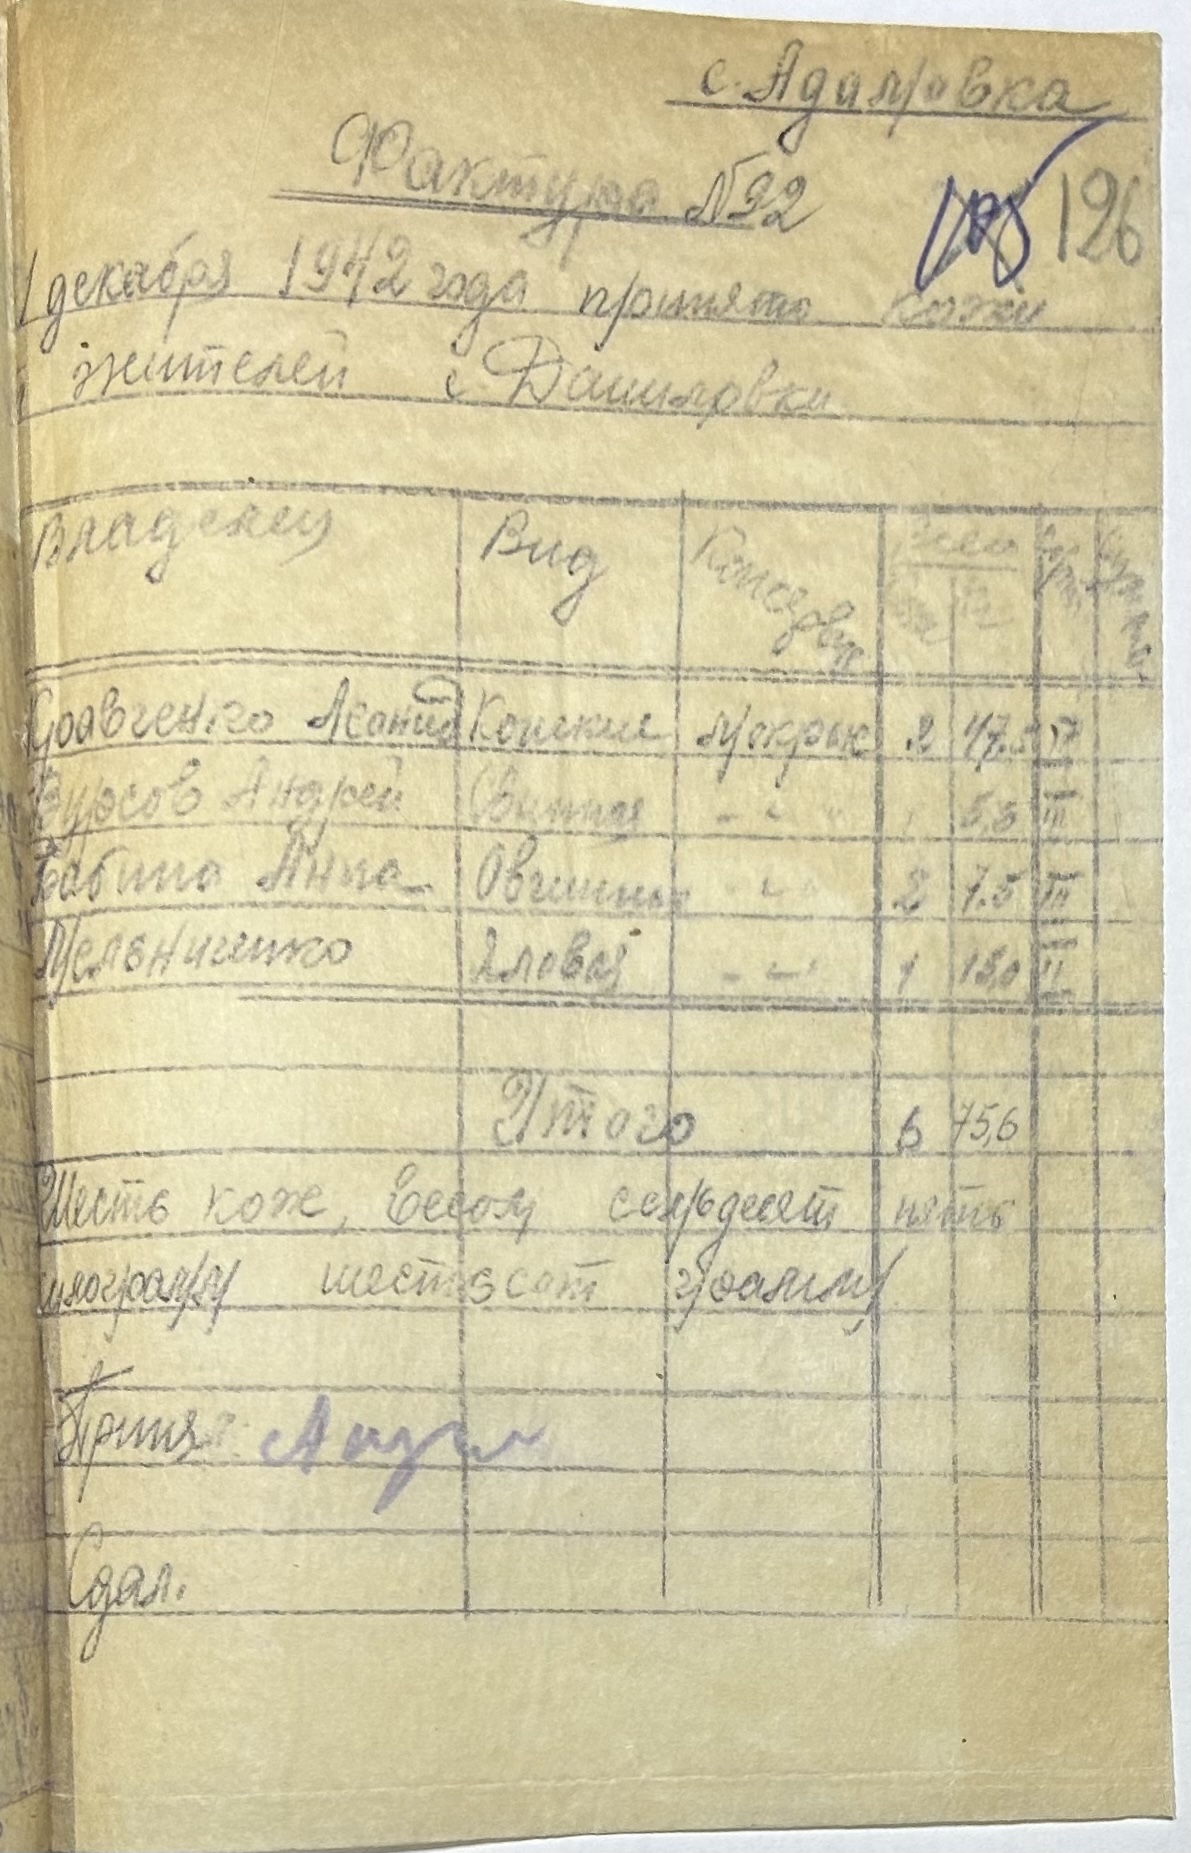 с. Адамовка
Фактура №22
126
1 декабря 1942 года принято кожи
жителей с Даниловки
Владелец Вид Консерв Всего
Кравченко Леонид Конские мокрык 2 47.
Бурсов Андрей Свиная -"- 5,6 III
Бабина Анна Овчины " 2 7.5 III
Мельниченко Яловая -"- 1 15,0 II
Итого 6 75,6
Шесть кож, весом семьдесят пять
килограмм шестьсот грамм
Принял
Сдал.